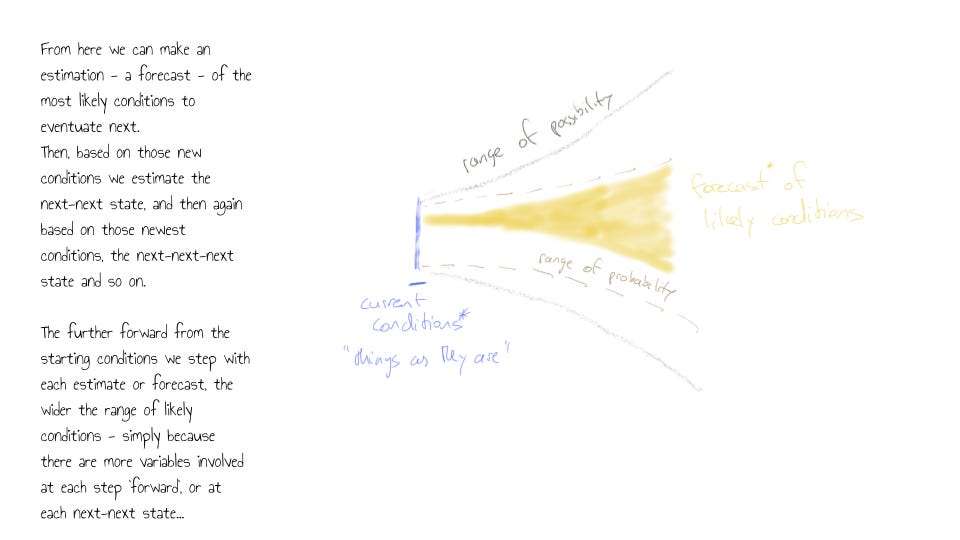 From here we can make an
estimation – a forecast – of the
most likely conditions to
eventuate next.
Then, based on those new
conditions we estimate the
next-next state, and then again
based on those newest
conditions, the next-next-next
state and so on.
The further forward from the
starting conditions we step with
each estimate or forecast, the
wider the range of likely
conditions – simply because
there are more variables involved
at each step 'forward', or at
each next-next state...
range of possibility
forecast* of
likely conditions
range of probability
current
conditions*
"things as they are"